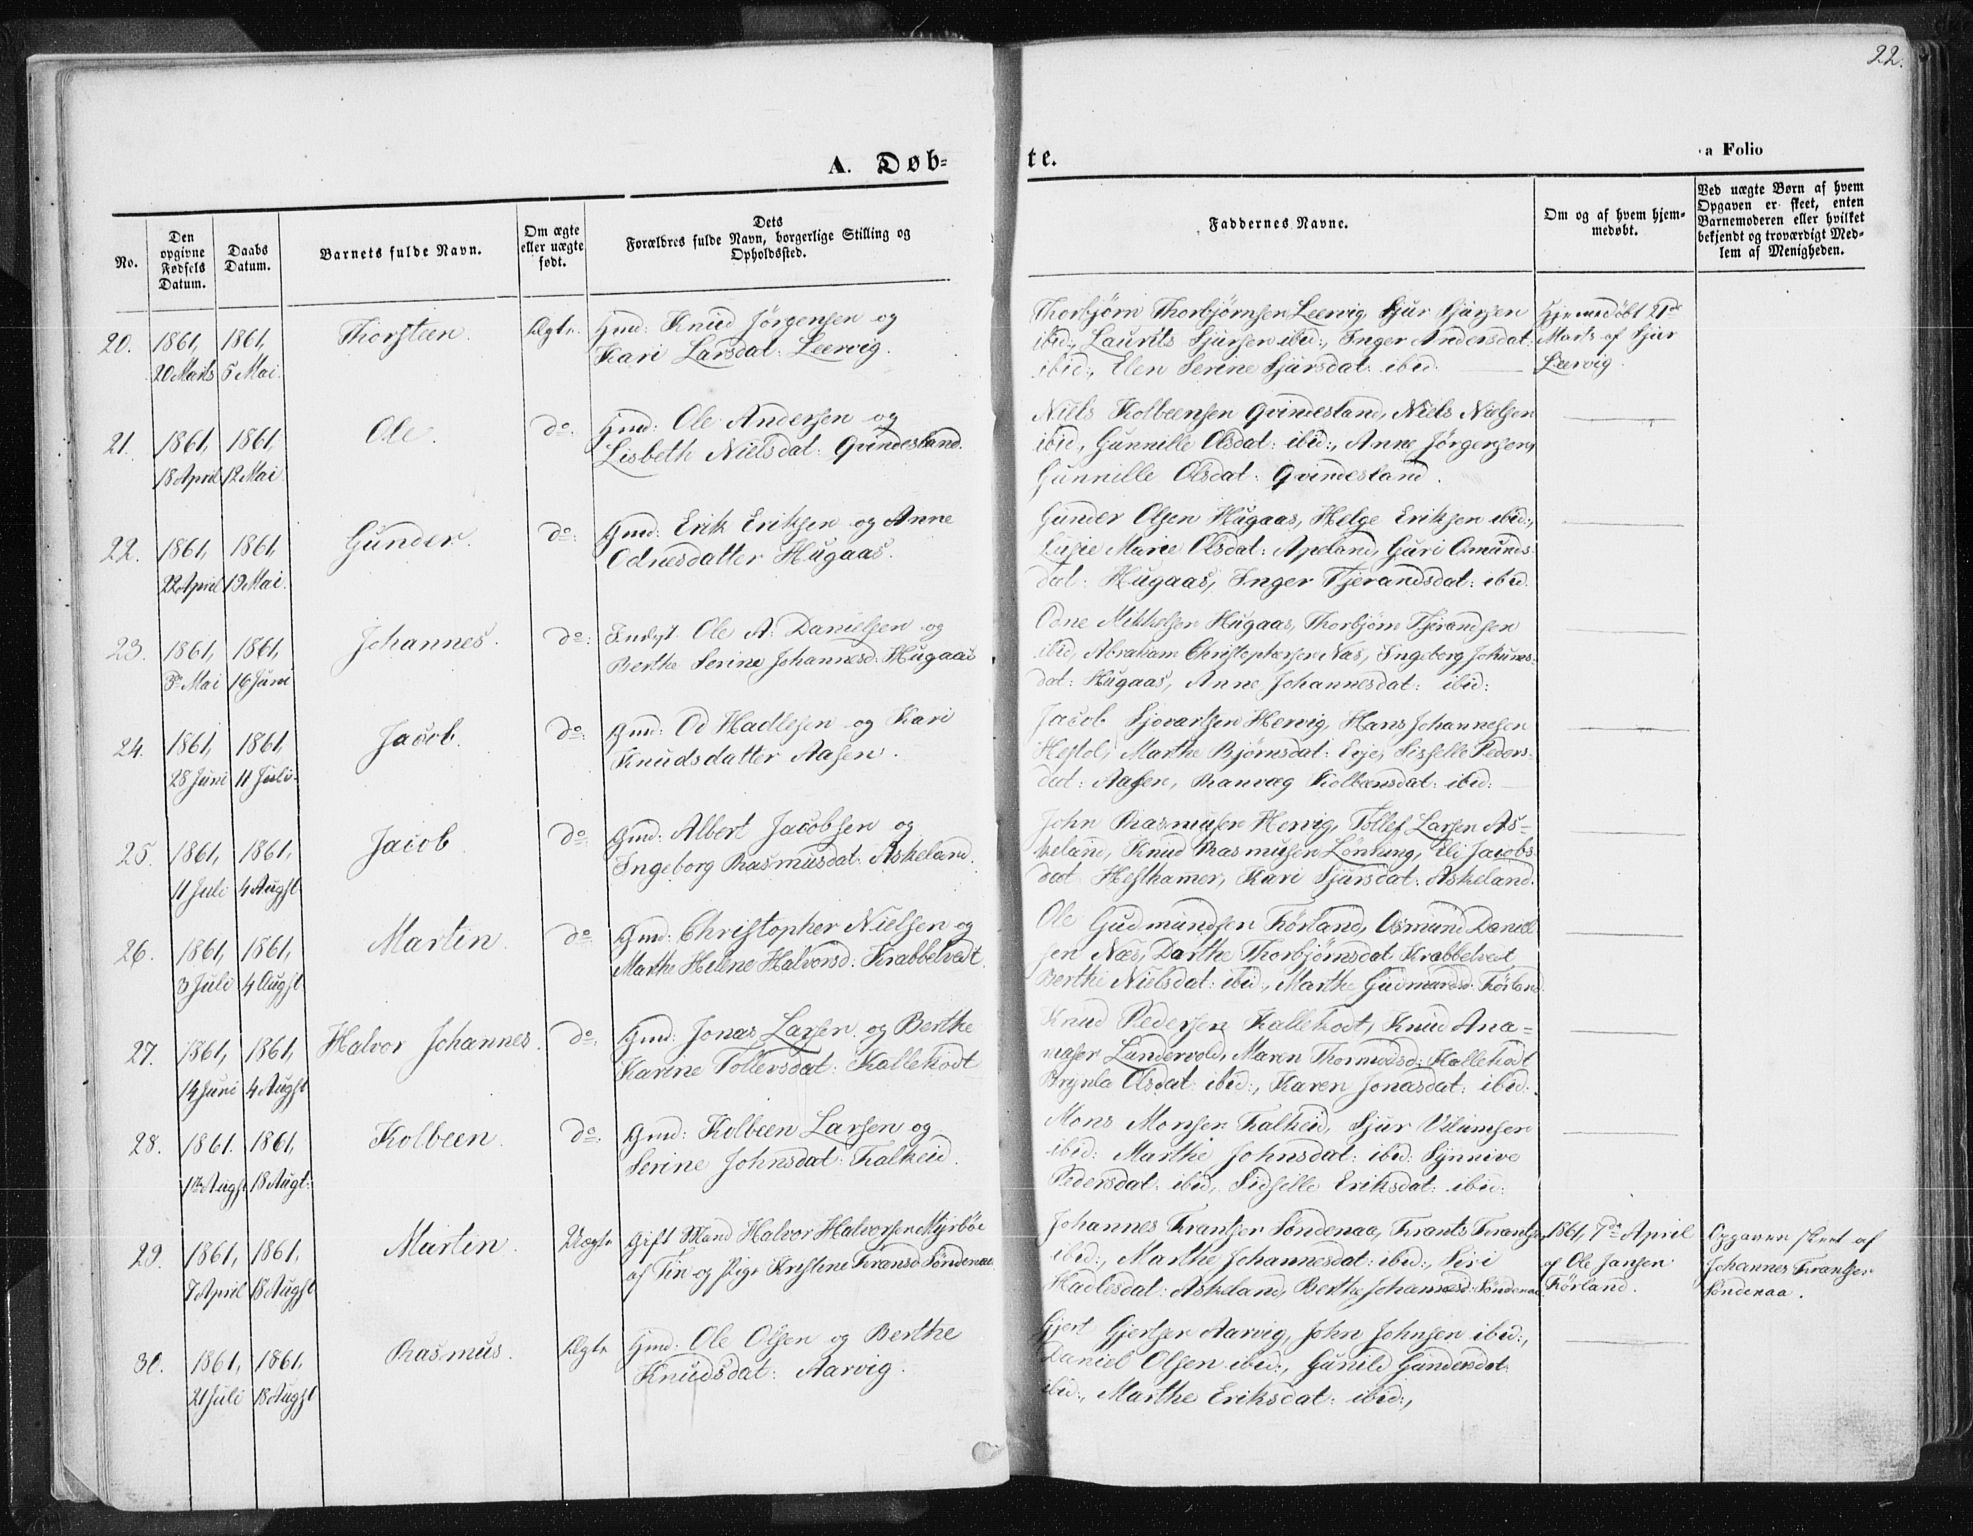 22.
A. Døb-
te.
a Folio
No.
Den opgivne Fødsels Datum.
Daabs Datum.
Barnets fulde Navn.
Om ægte eller uægte født.
Dets Forældres fulde Navn, borgerlige Stilling og Opholdssted.
Faddernes Navne.
Om og af hvem hjemmedøbt.
Ved uægte Børn af hvem
Opgaven er skeet, enten
Barnemoderen eller hvilket
bekjendt og troværdigt Med-
lem af Menigheden.
20. 1861, 20 Marts 1861, 5 Mai Thorsteen. Ægte
Gmd: Knud Jørgensen og
Kari Larsdat: Leervig.
Thorbjørn Thorbjørnsen Leervig, Sjur Sjursen
ibid:, Laurits Sjursen ibid:, Inger Andersdat:
ibid:, Elen Serine Sjursdat: ibid.
Hjemmedøbt 21de
Marts af Sjur
Leervig.
21. 1861, 18 April 1861, 12 Mai Ole. do.
Gmd: Ole Andersen og
Lisbeth Nielsdat: Qvindesland.
Niels Kolbeensen Qvindesland, Niels Nielsen
ibid, Gunnille Olsdat: ibid:, Anne Jørgensen,
Gunnille Olsdat: Qvindesland.
22. 1861, 22 April 1861, 19 Mai. Gunder. do:
Gmd: Erik Eriksen og Anne
Odnesdatter Hugaas.
Gunder Olsen Hugaas, Helge Eriksen ibid:,
Lusie Marie Olsdat: Apeland, Guri Osmunds-
dat: Hugaas, Inger Tjerandsdat: ibid.
23. 1861, 3de Mai 1861, 16 Juni Johannes. do:
Ole A. Danielsen og
Berthe Serine Johannesd: Hugaas
Odne Mikkelsen Hugaas, Thorbjørn Tjerandsen
ibid, Abraham Christophersen Næs, Ingeborg Johannes-
dat: Hugaas, Anne Johannesdat: ibid:
24. 1861, 28 Juni 1861, 11 Juli. Jacob. do:
Gmd: Od Hadlesen og Kari
Knudsdatter Aasen.
Jacob Sjovartsen Hervig, Hans Johannesen
Marthe Bjørnsdat: Eeje, Sisselle Peders-
dat: Aasen, Ranvæg Kolbænsdat: ibid:
25. 1861, 11 Juli 1861, 4 Augst Jacob. do:
Gmd: Albert Jacobsen og
Ingeborg Rasmusdat: Askeland.
John Rasmusen Hervig, Tollef Larsen As-
keland, Knud Rasmusen Lønning, Eli Jacobs-
dat Hesthamer, Kari Sjursdat: Askeland.
26. 1861, 3 Juli 1861, 4 Augst Martin. do:
Gmd: Christopher Nielsen og
Marthe Helene Halvorsd: Krabbetveit.
Ole Gudmundsen Førland, Osmund Daniel-
sen Næs, Darthe Thorbjørnsdat Krabbetveit
Berthe Nielsdat: ibid:, Marthe Gudmundsd: Førland
27. 1861, 14 Juni 1861, 4 Augst Halvor Johannes. do:
Gmd: Jonas Larsen og Berthe
Karine Tollevsdat: Kallekodt
Knud Pedersen Kallekodt, Knud Ana-
niasen Landervold, Maren Thormodsd: Kallekodt
Brynla Olsdat: ibid:, Karen Jonasdat: ibid:
28. 1861. 1861, 18 Augt: Kolbeen. do:
Gmd: Kolbeen Larsen og
Serine Johnsdat: Falkeid.
Mons Monsen Falkeid, Sjur Vilumsen
ibid: Marthe Johnsdat: ibid: Synnive
Pedersdat: ibid, Sidselle Eriksdat: ibid:
29. 1861, 7 April 1861, 18 Augst Martin. Uægte
Gift Mand Halvor Halvorsen Myrbøe
af Tin og Pige Kristine Fransd: Søndenaa
Johannes Frantsen Søndenaa, Frants Frantsen
ibid:, Marthe Johannesdat: ibid:, Siri
Hadlesdat: Askeland, Berthe Johannesd: Søndenaa
1861, 7de April
af Ole Jansen
Førland.
Opgaven skeet af
Johannes Frantsen
Søndenaa.
30. 1861, 21 Juli 1861, 18 Augst Rasmus. Ægte
Gmd: Ole Olsen og Berthe
Knudsdat: Aarvig.
Gjert Gjertsen Aarvig, John Johnsen ibid:,
Daniel Olsen ibid:, Gunild Gundersdat
ibid:, Marthe Eriksdat: ibid:,